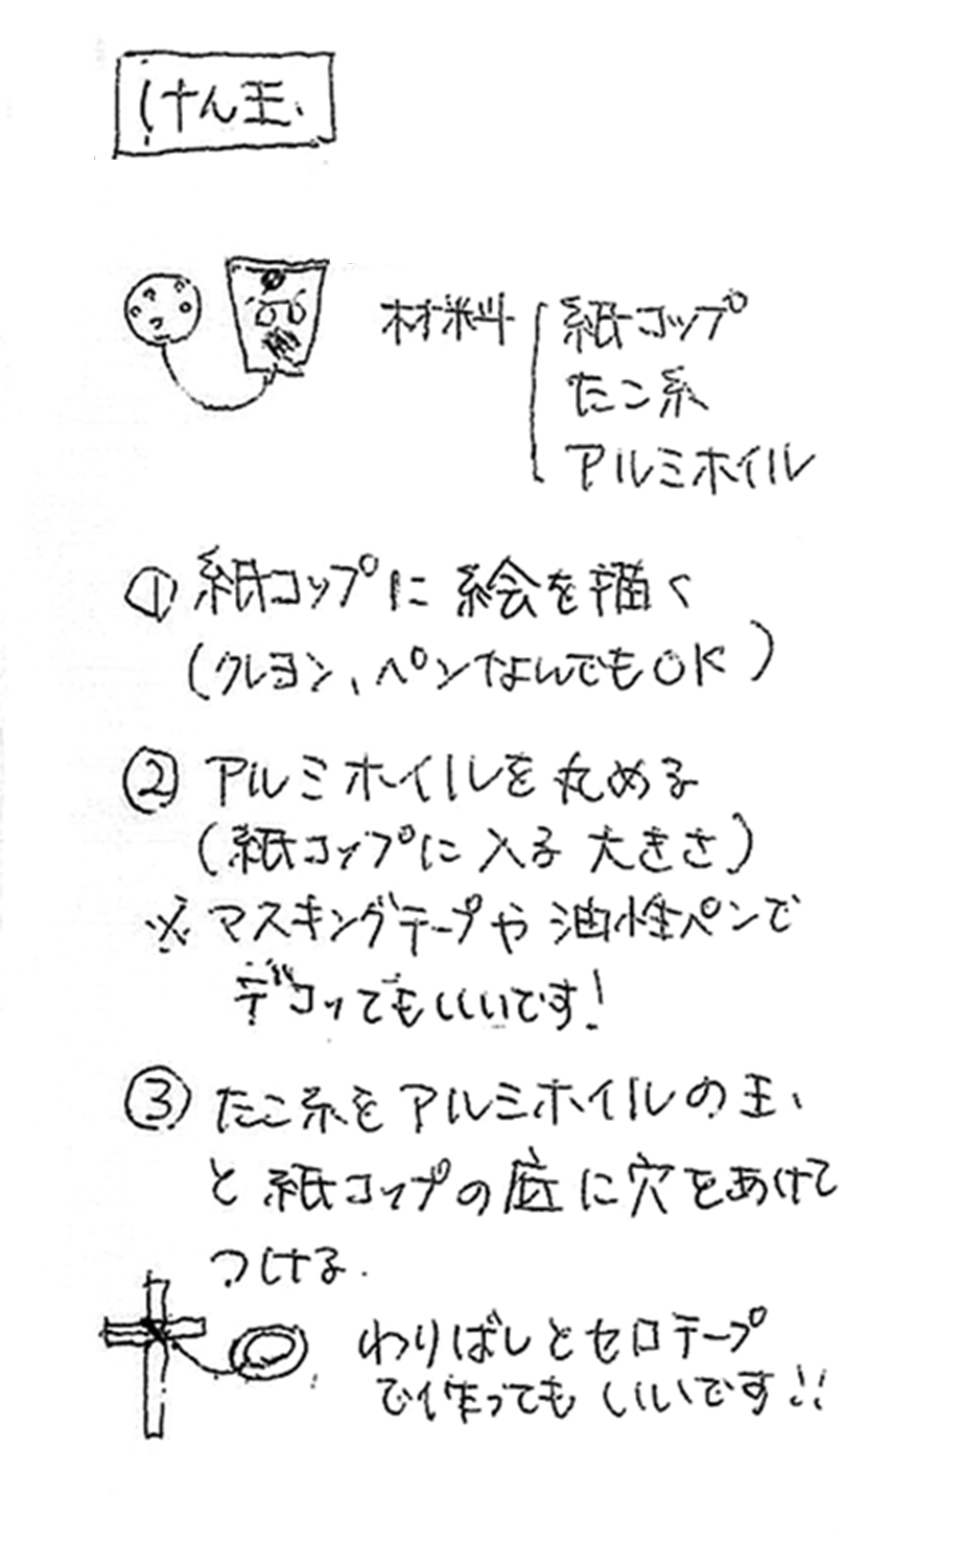 けん玉
材料 紙コップ
たこ糸
アルミホイル
① 紙コップに絵を描く
(クレヨン、ペンなんでもOK)
② アルミホイルを丸める
(紙コップに入る大きさ)
※ マスキングテープや油性ペンで
デコってもいいです!
③ たこ糸をアルミホイルの玉
と紙コップの底に穴をあけて
つける.
わりばしとセロテープ
で作ってもいいです!!